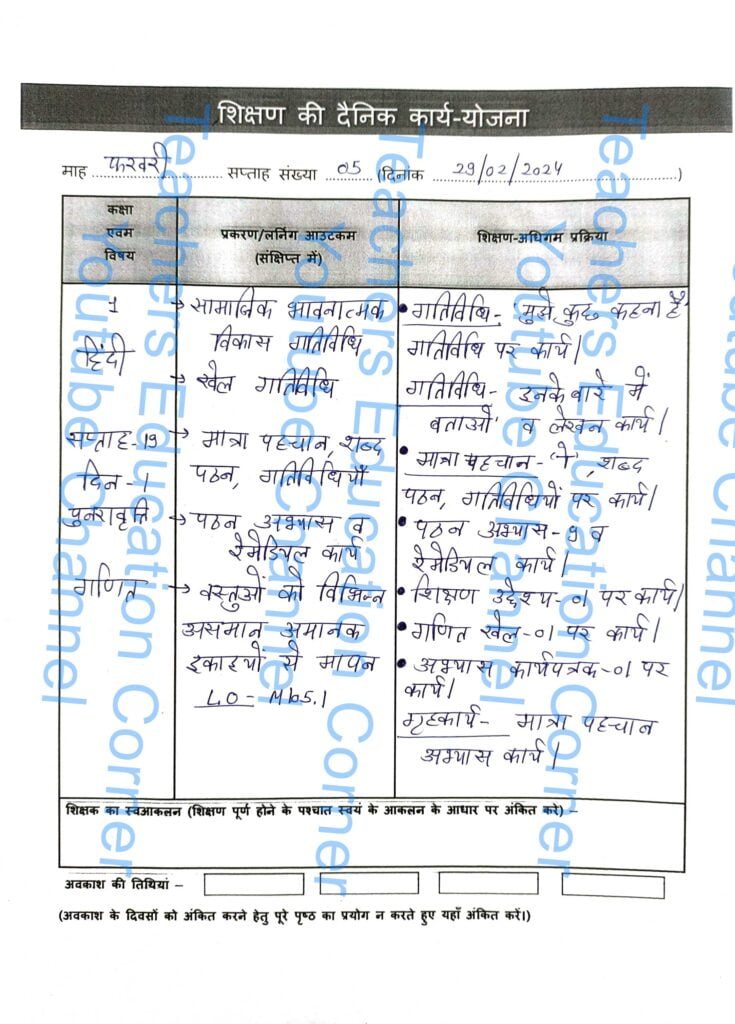 शिक्षण की दैनिक कार्य-योजना
माह फरवरी सप्ताह संख्या 05 (दिनांक 29/02/2024)
कक्षा
एवम
विषय
प्रकरण/लर्निंग आउटकम
(संक्षिप्त में)
शिक्षण-अधिगम प्रक्रिया
1
हिंदी
सप्ताह-19
दिन-1
पुनरावृत्ति
गणित
→ सामाजिक भावनात्मक
विकास गतिविधि
→ खेल गतिविधि
→ मात्रा पहचान, शब्द
पठन, गतिविधियाँ
→ पठन अभ्यास व
रेमेडियल कार्य
→ वस्तुओं को विभिन्न
असमान अमानक
इकाइयों से मापन
LO- M105.1
• गतिविधि- 'मुझे कुछ कहना है'
गतिविधि पर कार्य।
गतिविधि- इनके बारे में
बताओ' व लेखन कार्य।
• मात्रा पहचान-'ो', शब्द
पठन, गतिविधियों पर कार्य।
• पठन अभ्यास-9 व
रेमेडियल कार्य।
• शिक्षण उद्देश्य-01 पर कार्य।
• गणित खेल-01 पर कार्य।
• अभ्यास कार्यपत्रक-01 पर
कार्य।
गृहकार्य- मात्रा पहचान
अभ्यास कार्य।
शिक्षक का स्वआकलन (शिक्षण पूर्ण होने के पश्चात स्वयं के आकलन के आधार पर अंकित करे) –
अवकाश की तिथियां –
(अवकाश के दिवसों को अंकित करने हेतु पूरे पृष्ठ का प्रयोग न करते हुए यहाँ अंकित करें।)
Teachers Education Corner
Youtube Channel
Teachers Education Corner
Youtube Channel
Teachers Education Corner
Youtube Channel
utube Channel